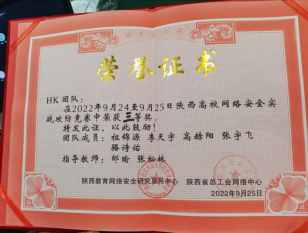 荣誉证书
HK团队：
在2022年9月24至9月25日陕西高校网络安全实
战攻防竞赛中荣获三等奖。
特发此证，以此鼓励！
团队成员：祖锦源 李天宇 高赫阳 张宇飞
骆诗佑
指导教师：邰瑜 张松林
陕西教育网络安全研究应用中心 陕西省总工会网络中心
2022年9月25日